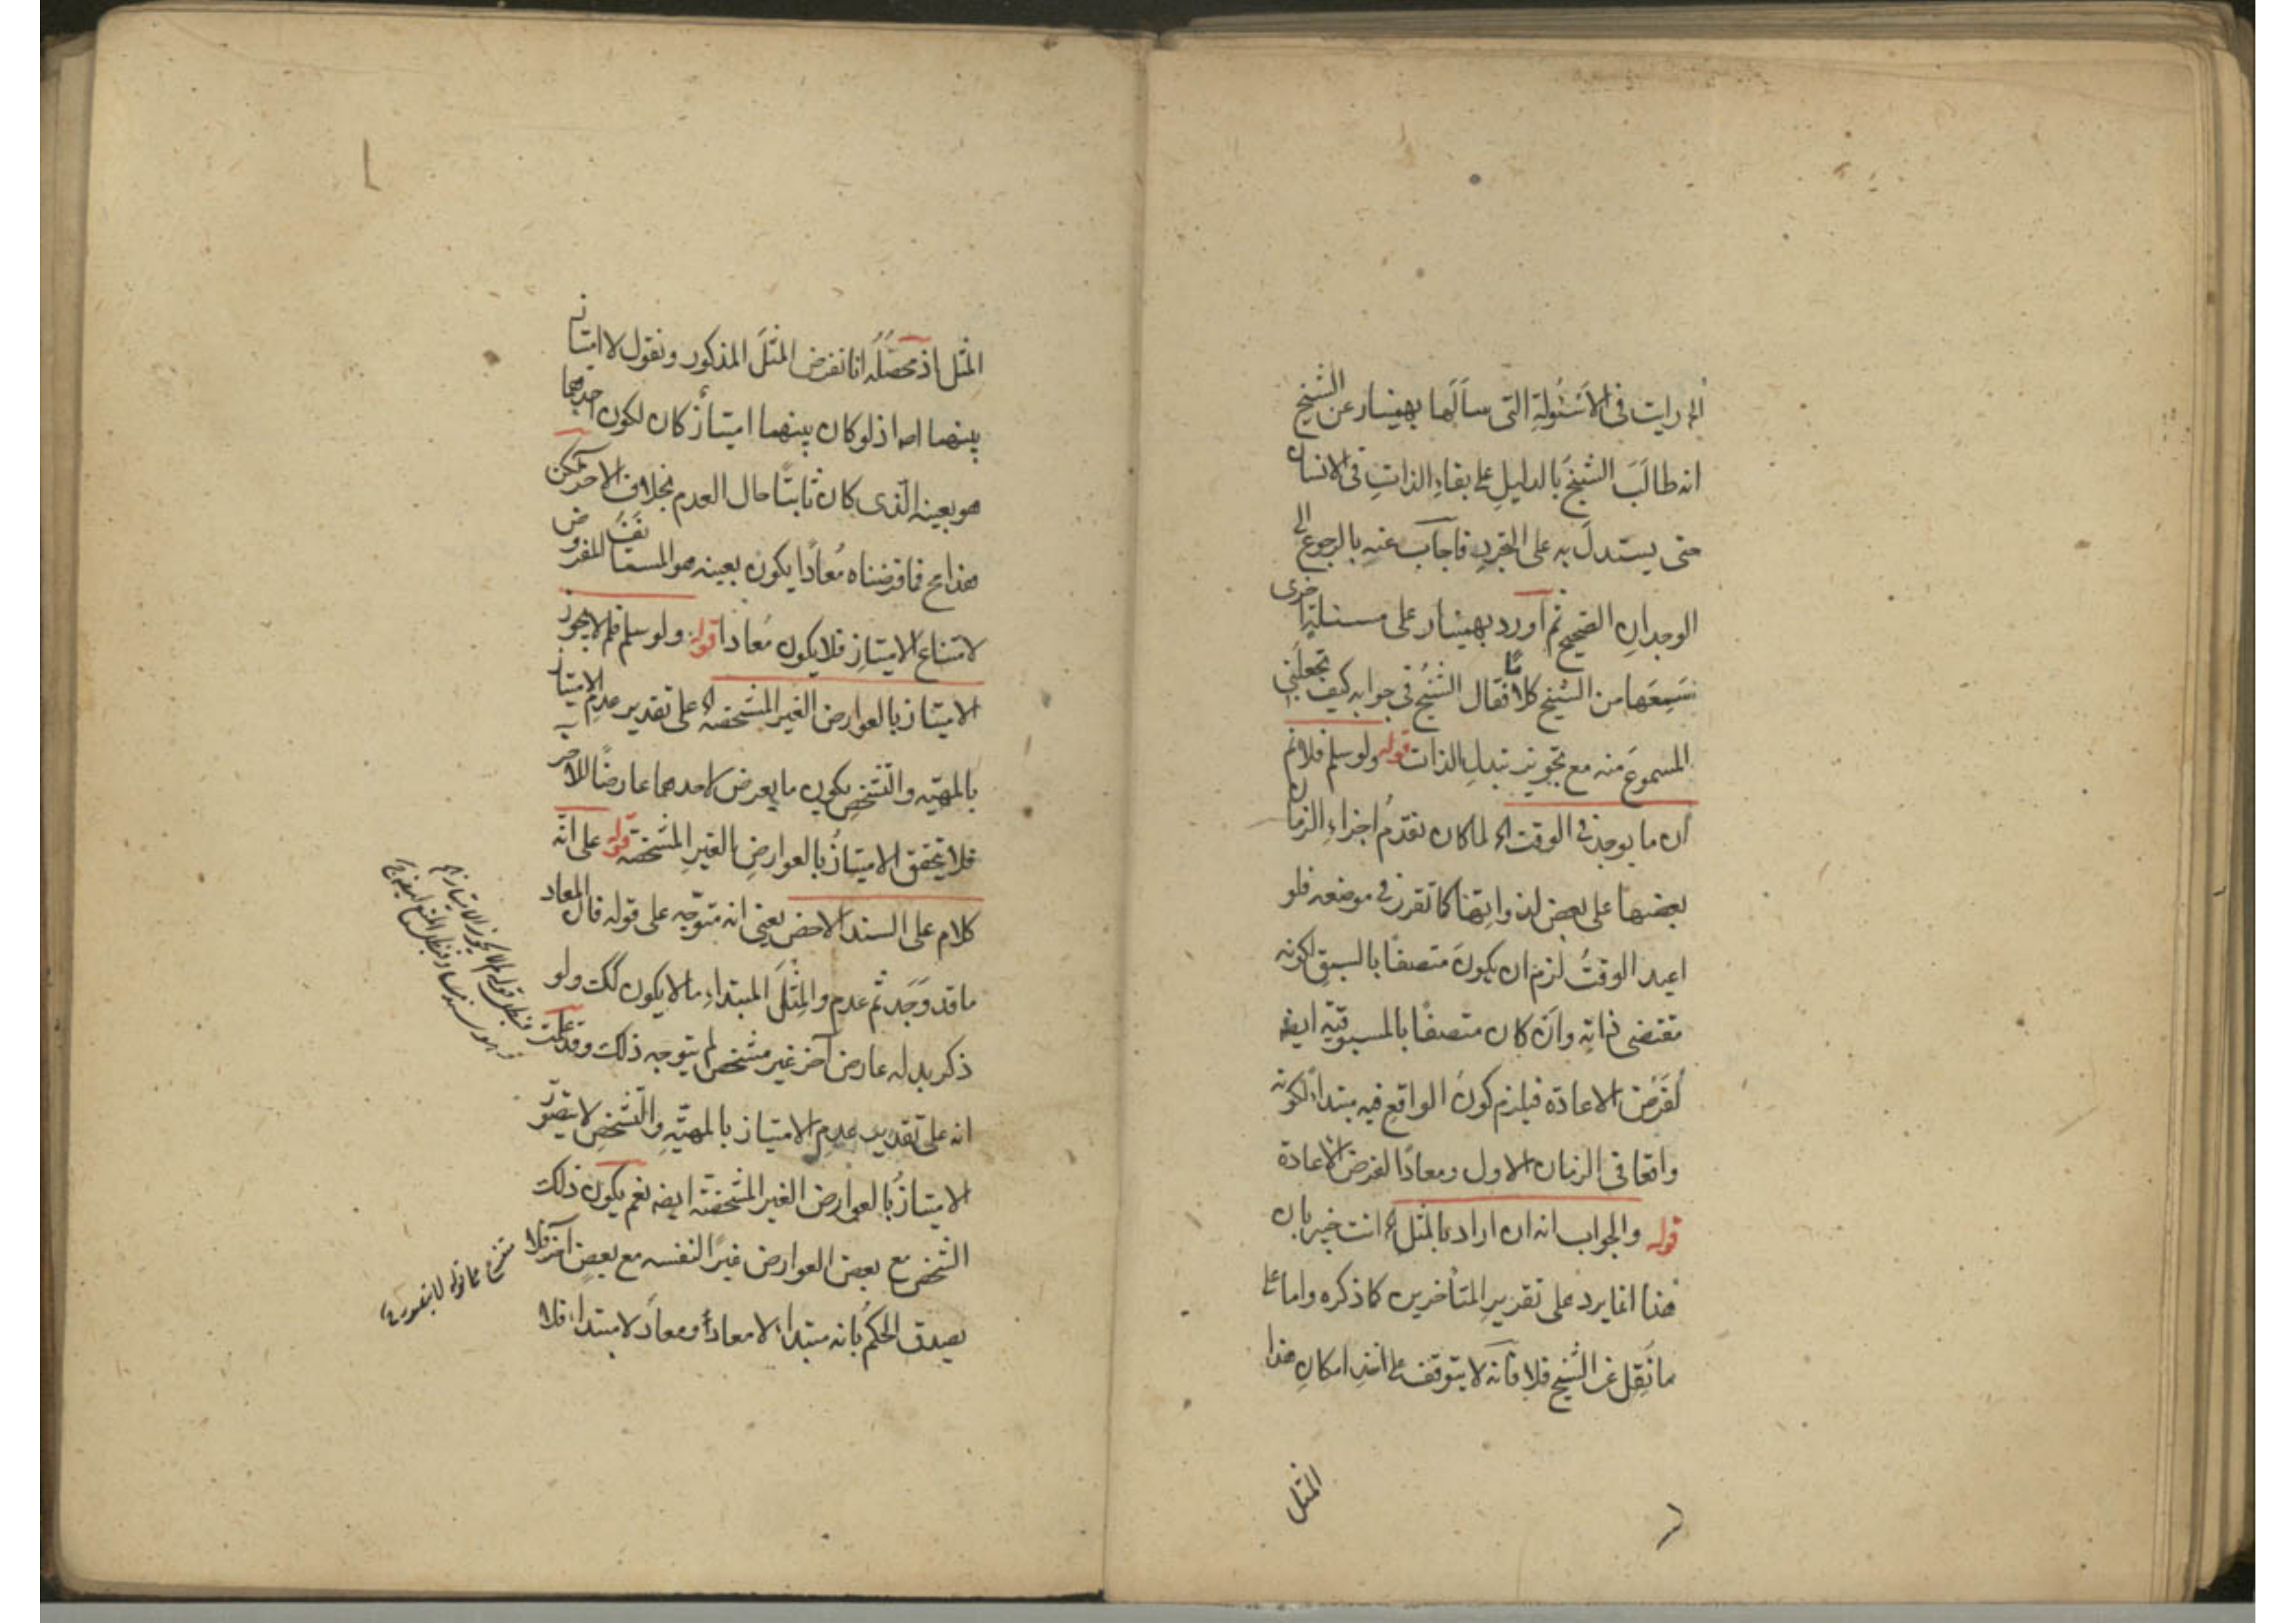 رايت فى الاسئولة التى سألها بهمنيار عن الشيخ
انه طالب الشيخ بالدليل على بقاء الذات فى الانسان
حتى يستدل به على التجرد فاجاب عنه بالرجوع الى
الوجدان الصحيح ثم اورد بهمنيار على مسئلة اخرى
سمعها من الشيخ كلاما فقال الشيخ فى جوابه كيف تجعلنى
المسموع منه مع تجويز تبدل الذات قوله ولو سلم فلا نم
ان ما يوجد فى الوقت اه لما كان تقدم اجزاء الزمان
بعضها على بعض لذواتها كما تقرر فى موضعه فلو
اعيد الوقت لزم ان يكون متصفا بالسبق لكونه
مقتضى ذاته وان كان متصفا بالمسبوقية ايضا
لفرض الاعادة فيلزم كون الواقع فيه مبتداء لكونه
واقعا فى الزمان الاول ومعادا لفرض الاعادة
قوله والجواب انه ان اراد بالمثل اه انت خبير بان
هذا انما يرد على تقرير المتأخرين كما ذكره واما على
ما نقل عن الشيخ فلا فانه لا يتوقف على اخذ امكان هذا
المثل
المثل اذ محصله انا نفرض المثل المذكور ونقول لا امتياز
بينهما اصلا اذ لو كان بينهما امتياز كان لكون احدهما
هو بعينه الذى كان ثابتا حال العدم بخلاف الاخر لكن
هذا مح فما فرضناه معادا يكون بعينه هو المستأنف المفروض
لامتناع الامتياز فلا يكون معادا قوله ولو سلم فلم لا يجوز
الامتياز بالعوارض الغير المشخصة اه على تقدير عدم الامتياز
بالمهية والتشخص يكون ما يعرض لاحدهما عارضا للاخر
فلا يتحقق الامتياز بالعوارض الغير المشخصة قوله على انه
كلام على السند الاخص يعنى انه متوجه على قوله فان المعاد
ما قد وجد ثم عدم والمثل المبتداء ما لا يكون كك ولو
ذكر بدله عارض آخر غير مشخص لم يتوجه ذلك وقد علمت
انه على تقدير عدم الامتياز بالمهية والتشخص لا يتصور
الامتياز بالعوارض الغير المشخصة ايضه نعم يكون ذلك
الشخص مع بعض العوارض غيرا لنفسه مع بعض آخر فلا
يصدق الحكم بانه مبتداء لا معاد او معاد لا مبتداء فلا